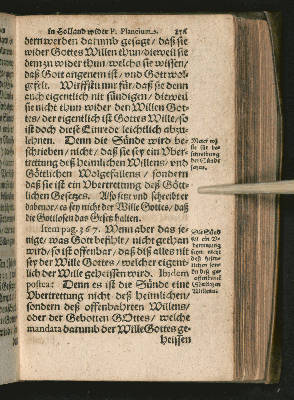 in Holland wider P. Plancium.
dern werden darumb gesagt / daß sie
wider Gottes Willen thun / dieweil sie
dem zu wider thun / welchs sie wissen /
daß Gott angenem ist / und Gott wol-
gefelt. Wirffstu mir für / daß sie denn
auch eigentlich nit sündigen / dieweil
sie nicht thun wider den Willen Got-
tes / der eigentlich ist Gottes Wille / so
ist doch diese Einrede leichtlich abzu-
lehnen. Denn die Sünde wird be-
schrieben / nicht / daß sie sey ein Uber-
trettung deß heimlichen Willens / und
Göttlichen Wolgefallens / sondern
daß sie ist ein Ubertrettung deß Gött-
lichen Gesetzes. Also setzt und schreibt er
daheuor / es sey nicht der Wille Gottes / daß
die Gottlosen das Gesetz halten.
Item pag. 367. Wenn aber das je-
nige / was Gott befihlt / nicht gethan
wird / so ist offenbar / daß diß alles nit
sey der Wille Gottes / welcher eigent-
lich der Wille geheissen wird. Ibidem
postea: Denn es ist die Sünde eine
Ubertrettung nicht deß heimlichen /
sondern deß offenbahrten Willens /
oder der Gebotten GOttes / welche
mandata darumb der Wille Gottes ge-
heissen
die Sünd
ein U-
bertrettung
sey nicht
deß heim-
lichen son-
dern deß ge-
offenbarten
Göttlichen
Willens.